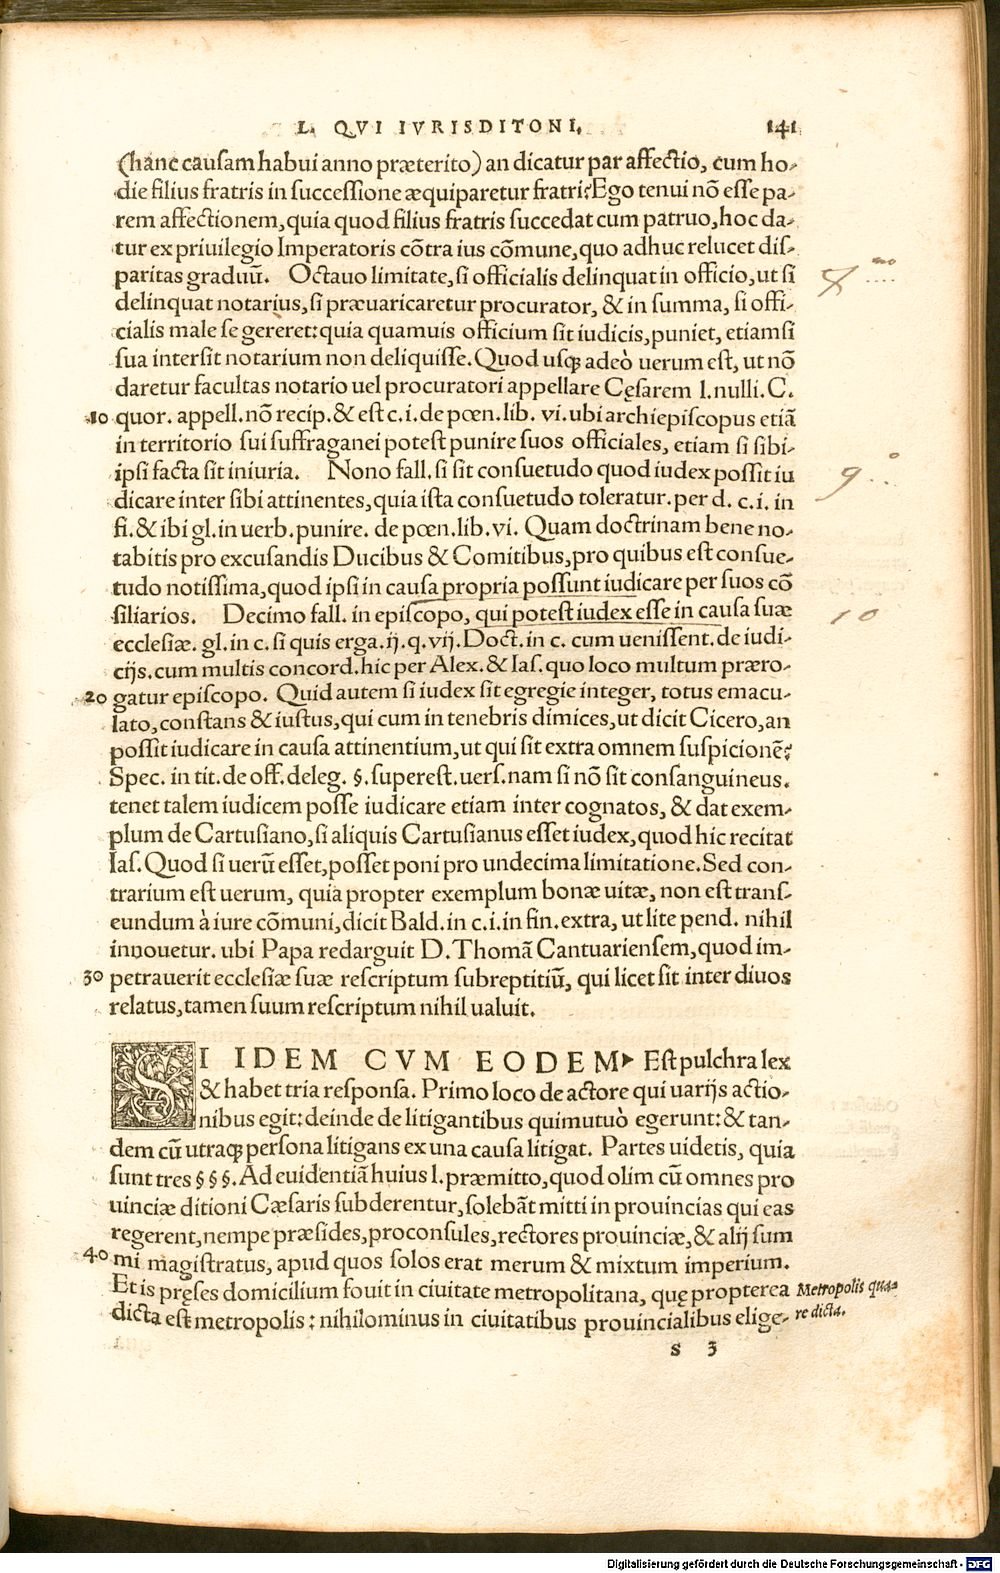 L. QVI IVRISDITONI. 141
(hanc causam habui anno præterito) an dicatur par affectio, cum ho-
die filius fratris in successione æquiparetur fratri? Ego tenui nõ esse pa-
rem affectionem, quia quod filius fratris succedat cum patruo, hoc da-
tur ex priuilegio Imperatoris cõtra ius cõmune, quo adhuc relucet dis-
paritas graduũ. Octauo limitate, si officialis delinquat in officio, ut si
8 uo
delinquat notarius, si præuaricaretur procurator, & in summa, si offi-
cialis male se gereret: quia quamuis officium sit iudicis, puniet, etiamsi
sua intersit notarium non deliquisse. Quod usq; adeò uerum est, ut nõ
daretur facultas notario uel procuratori appellare Cęsarem l. nulli. C.
10 quor. appell. nõ recip. & est c. i. de pœn. lib. vi. ubi archiepiscopus etiã
in territorio sui suffraganei potest punire suos officiales, etiam si sibi-
ipsi facta sit iniuria. Nono fall. si sit consuetudo quod iudex possit iu
9 o
dicare inter sibi attinentes, quia ista consuetudo toleratur. per d. c. i. in
fi. & ibi gl. in uerb. punire. de pœn. lib. vi. Quam doctrinam bene no-
tabitis pro excusandis Ducibus & Comitibus, pro quibus est consue-
tudo notissima, quod ipsi in causa propria possunt iudicare per suos cõ
siliarios. Decimo fall. in episcopo, qui potest iudex esse in causa suæ
10
ecclesiæ. gl. in c. si quis erga. ij. q. vij. Doct. in c. cum uenissent. de iudi-
cijs. cum multis concord. hic per Alex. & Ias. quo loco multum præro-
20 gatur episcopo. Quid autem si iudex sit egregie integer, totus emacu-
lato, constans & iustus, qui cum in tenebris dimices, ut dicit Cicero, an
possit iudicare in causa attinentium, ut qui sit extra omnem suspicionẽ?
Spec. in tit. de off. deleg. §. superest. uers. nam si nõ sit consanguineus.
tenet talem iudicem posse iudicare etiam inter cognatos, & dat exem-
plum de Cartusiano, si aliquis Cartusianus esset iudex, quod hic recitat
Ias. Quod si uerũ esset, posset poni pro undecima limitatione. Sed con-
trarium est uerum, quia propter exemplum bonæ uitæ, non est trans-
eundum à iure cõmuni, dicit Bald. in c. i. in fin. extra, ut lite pend. nihil
innouetur. ubi Papa redarguit D. Thomã Cantuariensem, quod im-
30 petrauerit ecclesiæ suæ rescriptum subreptitiũ, qui licet sit inter diuos
relatus, tamen suum rescriptum nihil ualuit.
SI IDEM CVM EODEM▸ Est pulchra lex
& habet tria responsa. Primo loco de actore qui uarijs actio-
nibus egit: deinde de litigantibus qui mutuò egerunt: & tan-
dem cũ utraq; persona litigans ex una causa litigat. Partes uidetis, quia
sunt tres § § §. Ad euidentiã huius l. præmitto, quod olim cũ omnes pro
uinciæ ditioni Cæsaris subderentur, solebãt mitti in prouincias qui eas
regerent, nempe præsides, proconsules, rectores prouinciæ, & alij sum
40 mi magistratus, apud quos solos erat merum & mixtum imperium.
Et is pręses domicilium fouit in ciuitate metropolitana, quę propterea
Metropolis qua-
dicta est metropolis: nihilominus in ciuitatibus prouincialibus elige-
re dicta.
s 3
Digitalisierung gefördert durch die Deutsche Forschungsgemeinschaft - DFG